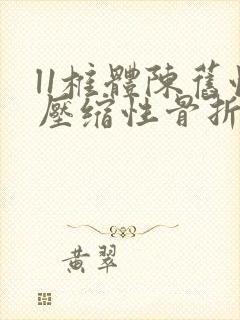 11椎體陳舊性
壓缩性骨折
黄翠